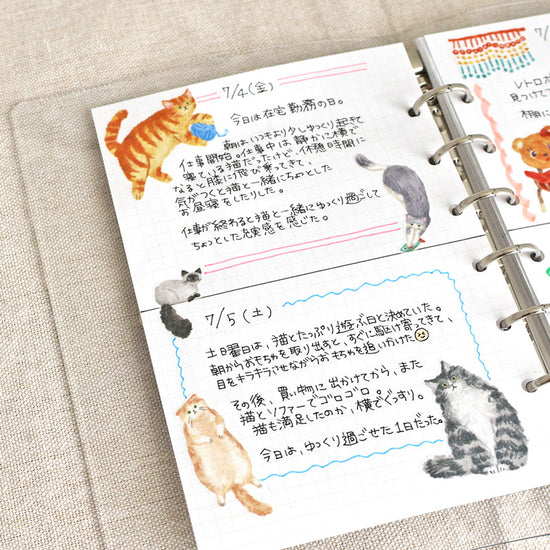 7/4(金)
今日は在宅勤務の日。
朝はいつもより少しゆっくり起きて
仕事開始。仕事中は静かに横で
寝ている猫だったけど、休憩時間に
なると膝に飛び乗ってきて、
気がつくと猫と一緒にちょっと
お昼寝をしたりした。
仕事が終わると猫と一緒にゆっくり過ごして
ちょっとした充実感を感じた。
7/5(土)
土曜日は、猫とたっぷり遊ぶ日と決めていた。
朝からおもちゃを取り出すと、すぐに駆け寄ってきて、
目をキラキラさせながらおもちゃを追いかけた
その後、買い物に出かけてから、また
猫とソファーでゴロゴロ。
猫も満足したのか、横でぐっすり。
今日は、ゆっくり過ごせた1日だった。
7/
レトロな
見つけて